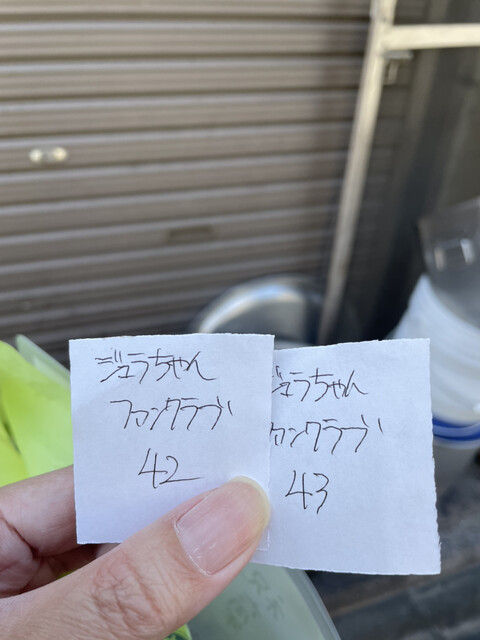 ジュラちゃん
ファンクラブ
42
ジュラちゃん
ァンクラブ
43